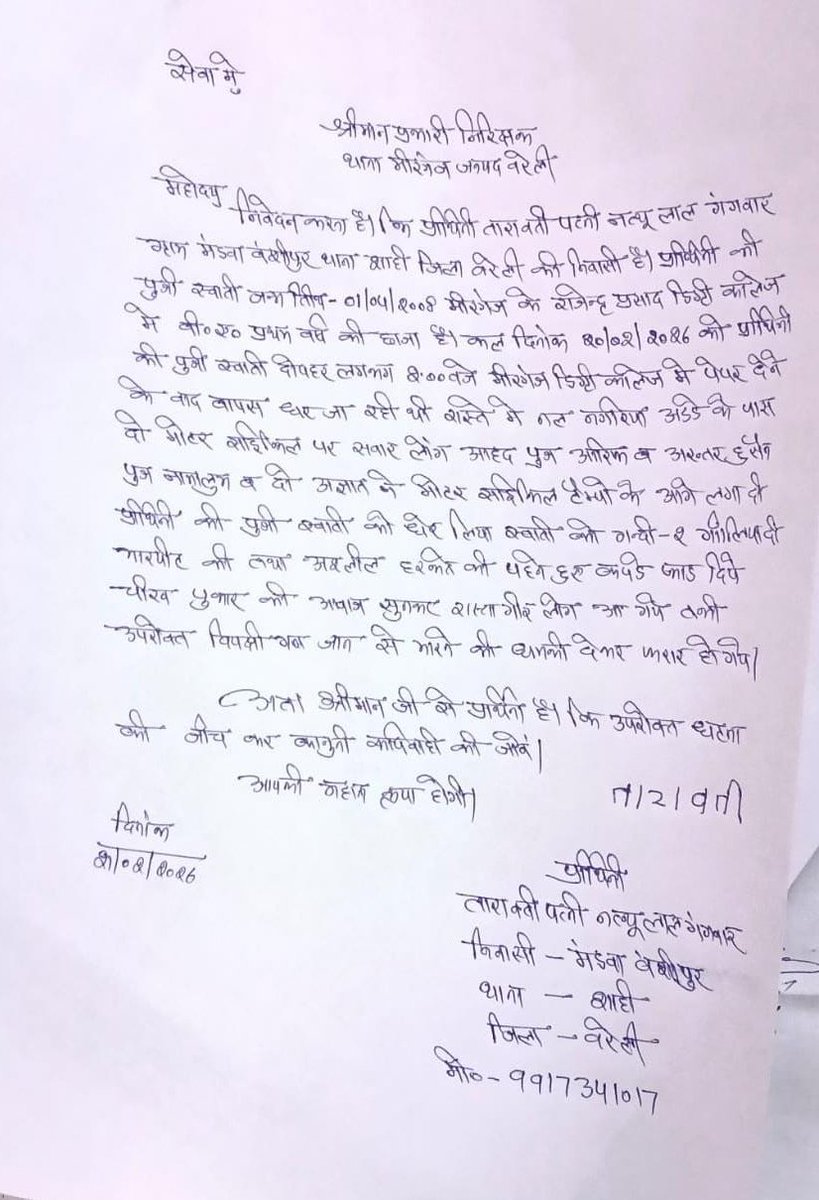 सेवा मे
श्रीमान प्रभारी निरिक्षक
थाना मीरगंज जनपद बरेली
महोदय
निवेदन करना है। कि प्रार्थिनी तारावती पत्नी नत्थू लाल गंगवार
ग्राम मंडवा वंशीपुर थाना शाही जिला बरेली की निवासी है। प्रार्थिनी की
पुत्री स्वाती जन्म तिथि - 01/04/200 मीरगंज के राजेन्द्र प्रसाद डिग्री कालेज
मे बी०ए० प्रथम वर्ष की छात्रा है। कल दिनांक 20/02/2026 को प्रार्थिनी
की पुत्री स्वाती दोपहर लगभग 2:00 वजे मीरगंज डिग्री कालेज मे पेपर देने
के वाद वापस घर जा रही थी रास्ते मे नल नगरिया अडडे के पास
दो मोटर साईकिल पर सवार लोग अहद पुत्र आरिफ व अख्तर हुसैन
पुत्र नामालुम व दो अज्ञात ने मोटर साईकिल टैम्पो के आगे लगा दी
प्रार्थिनी की पुत्री स्वाती को घेर लिया स्वाती को गन्दी-2 गालिया दी
मारपीट की तथा अश्लील हरकत की पहने हुए कपडे फाड दिये
चीख पुकार की अवाज सुनकर रास्ता गीर लोग आ गये तभी
उपरोक्त विपक्षी गण जान से मारने की धमकी देकर फरार हो गये।
अतः श्रीमान जी से प्रार्थना है। कि उपरोक्त घटना
की जाँच कर कानुनी कार्यवाही की जावें।
आपकी महान कृपा होगी।
तारावती
दिनांक
21/02/2026
प्रार्थिनी
तारावती पत्नी नत्थू लाल गंगवार
निवासी - मंडवा वंशीपुर
थाना - शाही
जिला - बरेली
मो०- 9917341017